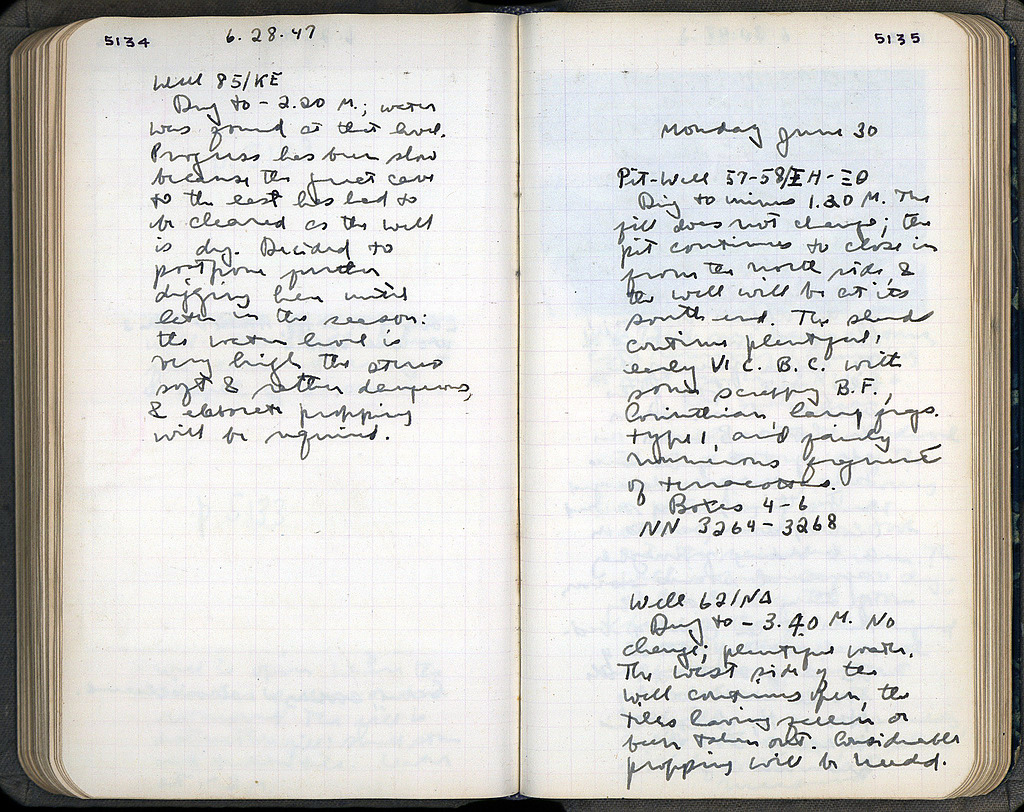 5134
6.28.47
Well 85/KE
Dug to - 2.20 M.; water
was found at that level.
Progress has been slow
because the great cave
to the east has had to
be cleared as the well
is dug. Decided to
postpone further
digging here until
later in the season:
the water level is
very high the stereo
soft & rather dangerous,
& elaborate propping
will be required.
5135
Monday June 30
Pit-Well 57-58/ΞH-ΞΘ
Dug to minus 1.20 M. The
fill does not change; the
pit continues to close in
from the north side, &
the well will be at its
south end. The sherds
continue plentiful,
early VI C. B.C. with
some scrappy B.F.,
Corinthian lamp frgs.
type 1, and fairly
numerous fragments
of terracottas.
Boxes 4-6
NN 3264-3268
Well 62/NΔ
Dug to - 3.40 M. No
change; plentiful water.
The west side of the
well continues open, the
tiles having fallen or
been taken out. Considerable
propping will be needed.